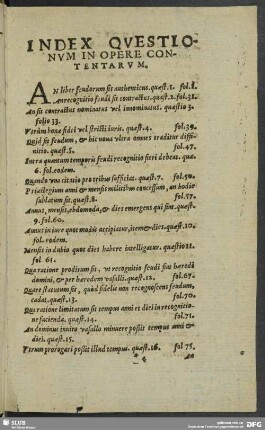 INDEX QVESTIO-
NVM IN OPERE CON-
TENTARVM.
AN liber feudorum sit authenticus. quæst.1. fol.8.
An recognitio feudi sit contractus. quæst.2. fol.31.
An sit contractus nominatus vel innominatus. quæstio 3.
folio 33.
Vtrùm bonæ fidei vel stricti iuris. quæst.4. fol.39.
Quid sit feudum, & hic noua vltra omnes traditur diffi-
nitio. quæst.5. fol.47.
Intra quantum temporis feudi recognitio fieri debeat. quæ.
6. fol. eodem.
Quando vnus titulis pro tribus sufficiat. quæst.7. fol.50.
Priuilegium anni & mensis militibus concessum, an hodie
sublatum sit. quæst.8. fol.57.
Annus, mensis, ebdomoda, & dies emergens qui sint. quæst.
9. fol.60.
Annus in iure quot modis accipiatur, item & dies. quæst.10.
fol. eodem.
Mensis in dubio quot dies habere intelligatur. quæstio 11.
fol. 61.
Qua ratione proditum sit, vt recognitio feudi fiat hæredi
domini, & per hæredem vasalli. quæst.12. fol.67.
Quare statutum sit, quòd fidelis non recognoscens feudum,
cadat. quæst.13. fol.70.
Qua ratione limitatum sit tempus anni et diei in recognitio-
ne facienda. quæst.14. fol.71.
An dominus inuito vasallo minuere possit tempus anni &
diei. quæst.15.
Vtrum prorogari possit illud tempus. quæst.16. fol 75.
An
SLUB
DFG